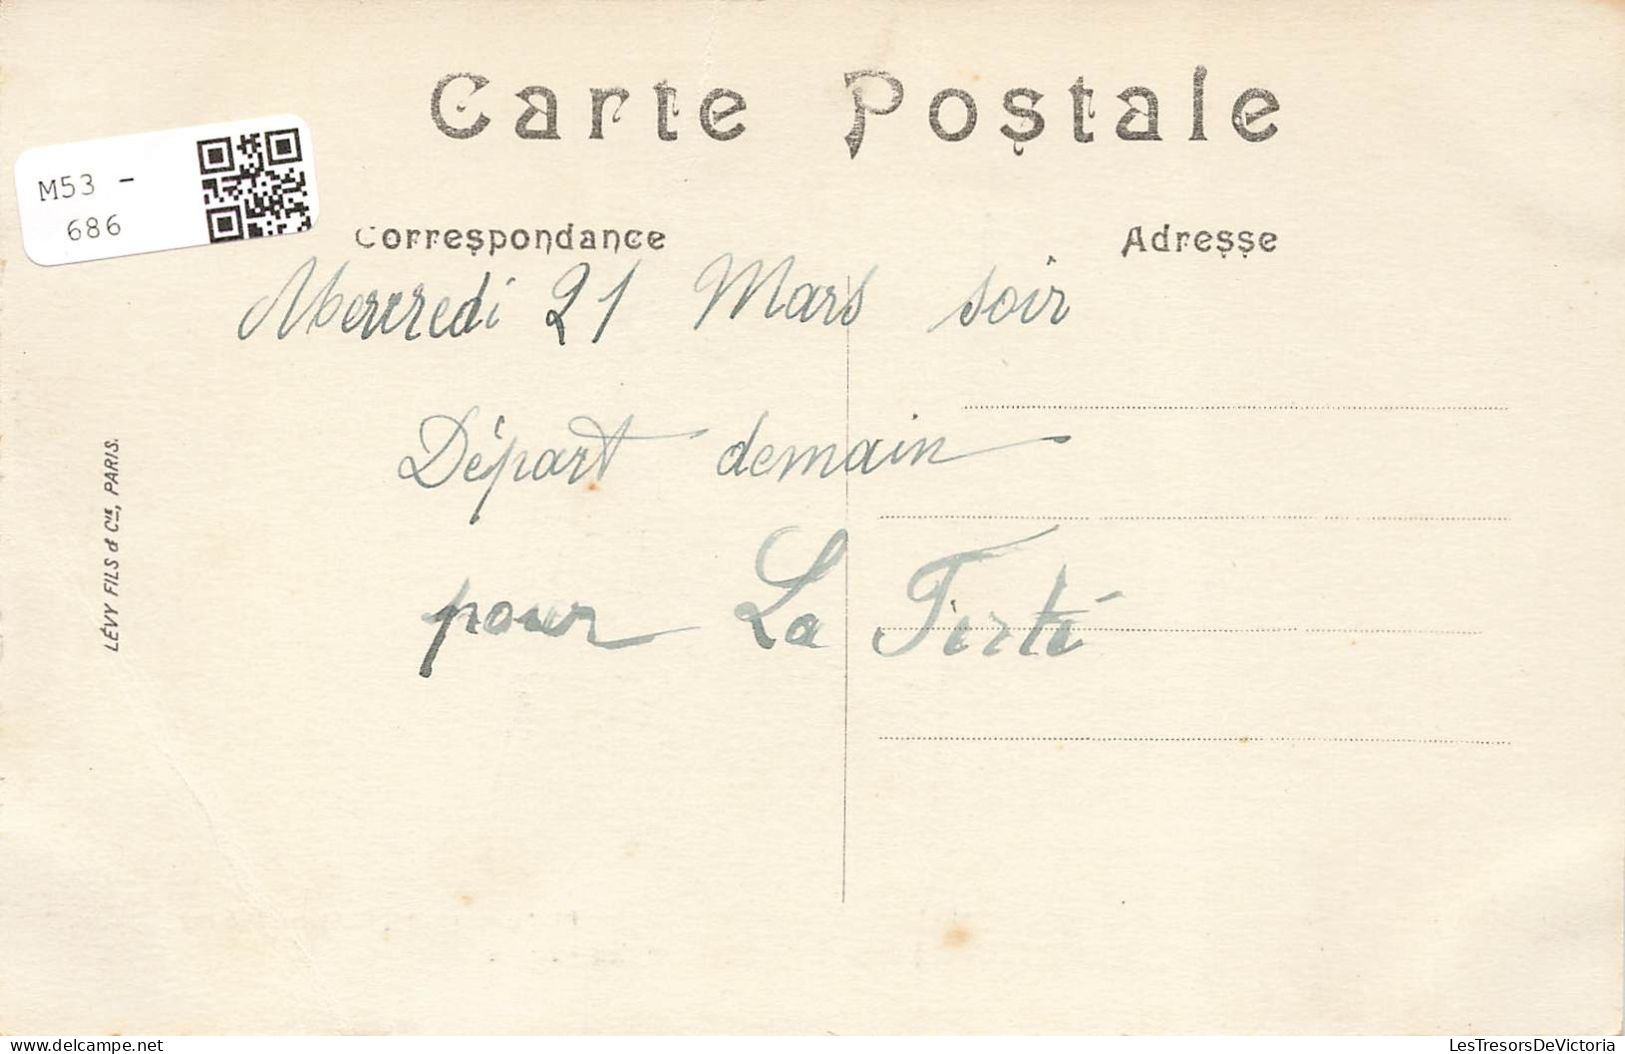 Carte Postale
M53 -
686
Correspondance
Adresse
Mercredi 21 Mars soir
Départ demain
pour La Ferté
LÉVY FILS & Cie, PARIS.
delcampe.net
LesTresorsDeVictoria